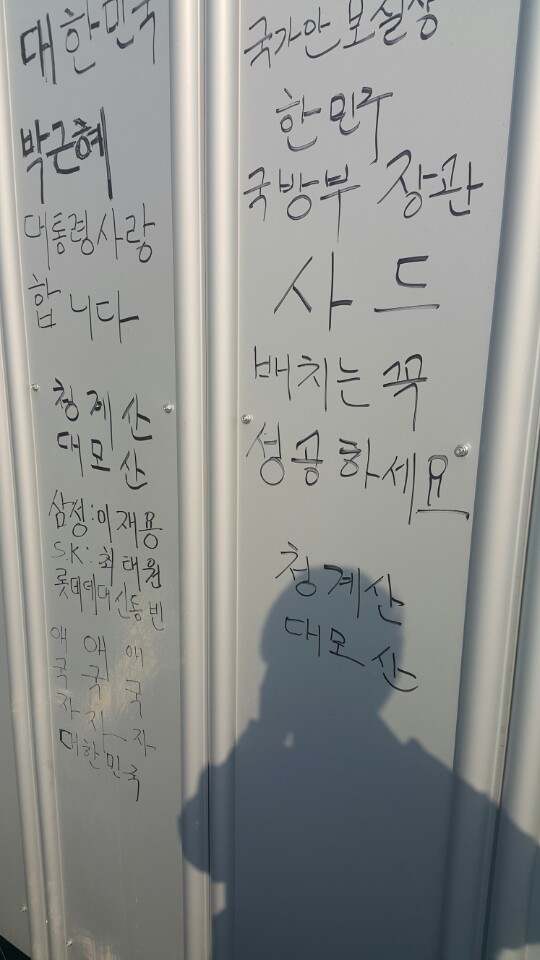 대한민국
박근혜
대통령사랑
합니다
청계산
대모산
삼성:이재용
S.K:최태원
롯데데대신동빈
애 애 애
국 국 국
자 자 자
대한민국
국가안보실장
한민구
국방부 장관
사드
배치는 꼭
성공하세요
청계산
대모산